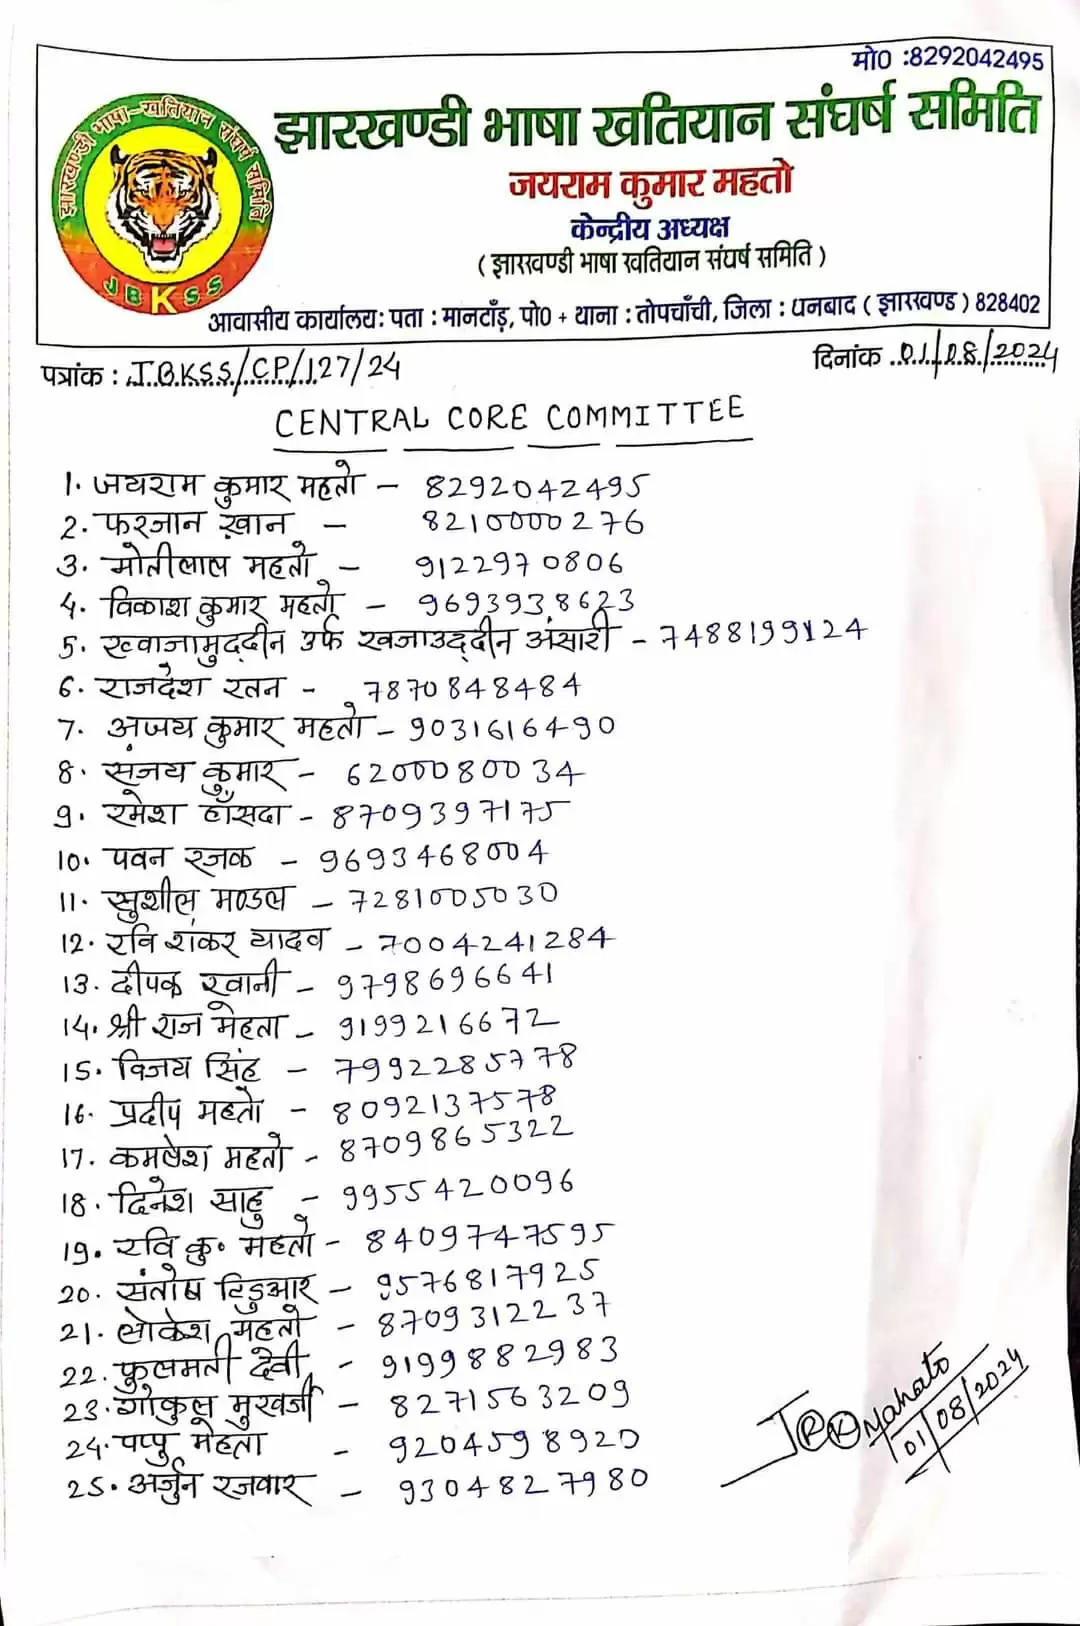 मो0 :8292042495
झारखण्डी भाषा-खतियान संघर्ष समिति
JBKSS
झारखण्डी भाषा खतियान संघर्ष समिति
जयराम कुमार महतो
केन्द्रीय अध्यक्ष
( झारखण्डी भाषा खतियान संघर्ष समिति )
आवासीय कार्यालय: पता : मानटाँड़, पो0 + थाना : तोपचाँची, जिला : धनबाद ( झारखण्ड ) 828402
पत्रांक : J.B.K.S.S./CP/127/24
दिनांक 01/08/2024
CENTRAL CORE COMMITTEE
1. जयराम कुमार महतो - 8292042495
2. फरजान ख़ान - 8210000276
3. मोतीलाल महतो - 9122970806
4. विकाश कुमार महतो - 9693938623
5. ख्वाजामुद्दीन उर्फ खजाउद्दीन अंसारी - 7488199124
6. राजदेश रतन - 7870848484
7. अजय कुमार महतो - 9031616490
8. संजय कुमार - 6200080034
9. रमेश हाँसदा - 8709397175
10. पवन रजक - 9693468004
11. सुशील मण्डल - 7281005030
12. रवि शंकर यादव - 7004241284
13. दीपक रवानी - 9798696641
14. श्री राज मेहता - 9199216672
15. विजय सिंह - 7992285778
16. प्रदीप महतो - 8092137578
17. कमलेश महतो - 8709865322
18. दिनेश साहु - 9955420096
19. रवि कु० महतो - 8409747595
20. संतोष टिडुआर - 9576817925
21. लोकेश महतो - 8709312237
22. फुलमती देवी - 9199882983
23. गोकुल मुखर्जी - 8271563209
24. पप्पु मेहता - 9204598920
25. अर्जुन रजवार - 9304827980
JRKMahato
01/08/2024